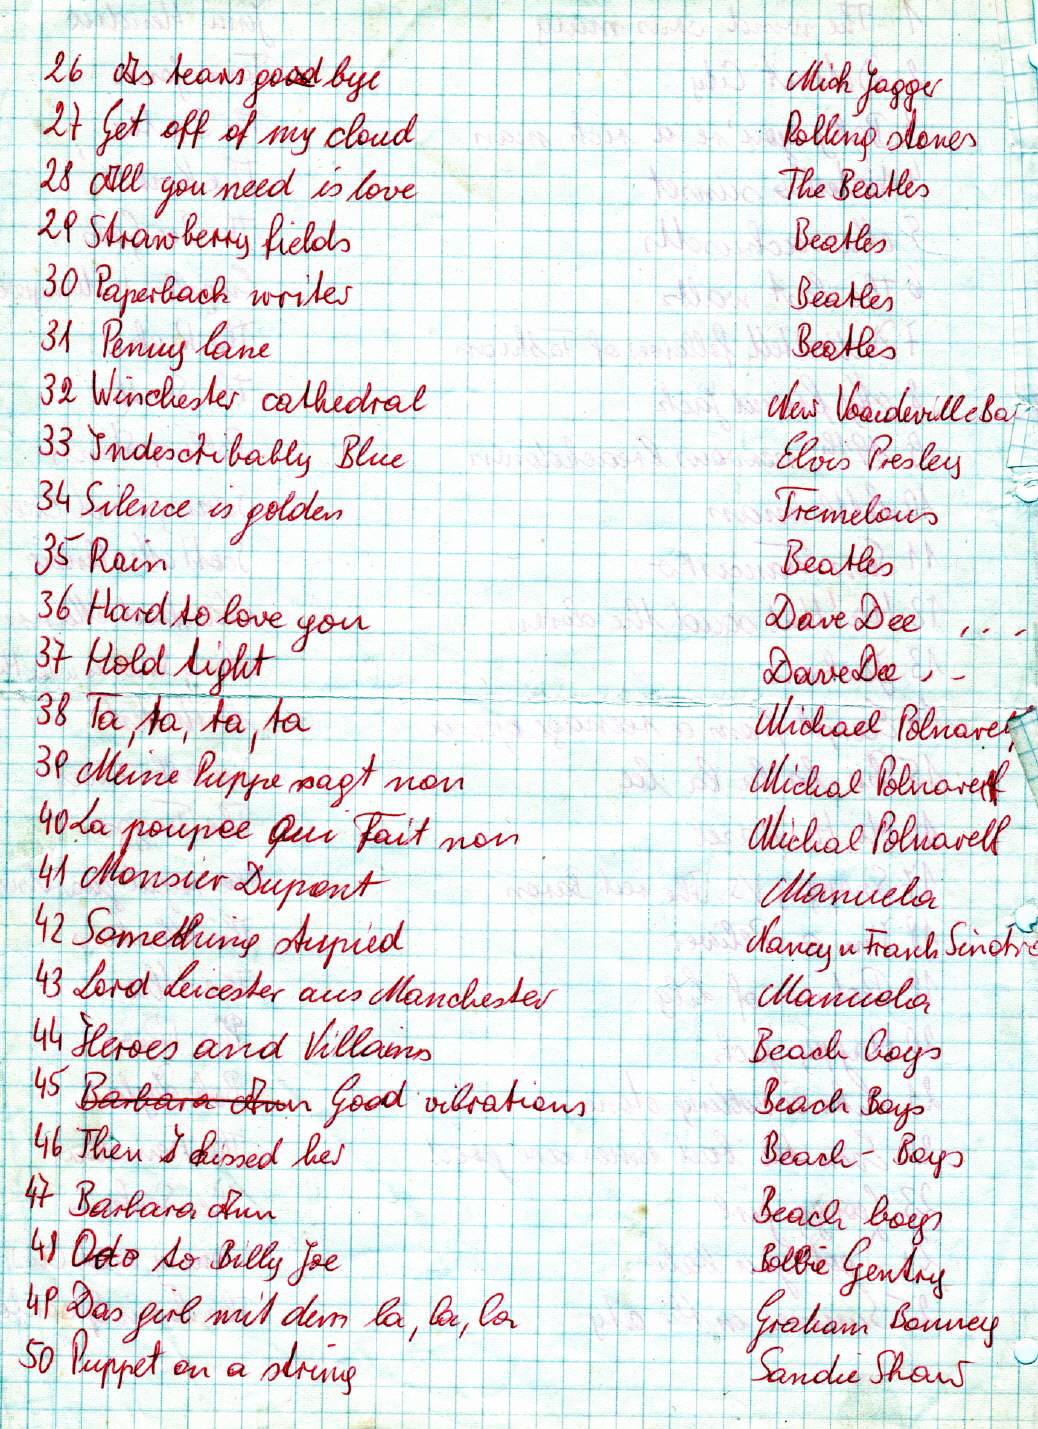 26 As tears good bye Mick Jagger
27 Get off of my cloud Rolling stones
28 All you need is love The Beatles
29 Strawberry fields Beatles
30 Paperback writer Beatles
31 Penny lane Beatles
32 Winchester cathedral New Vaudeville Ba
33 Indescribably Blue Elvis Presley
34 Silence is golden Tremelous
35 Rain Beatles
36 Hard to love you Dave Dee ...
37 Hold tight Dave Dee ..
38 Ta, ta, ta, ta Michael Polnareff
39 Meine Puppe sagt non Michal Polnareff
40 La poupee Qui Fait non Michal Polnareff
41 Monsier Dupont Manuela
42 Something stupied Nancy u Frank Sinatra
43 Lord Leicester aus Manchester Manuela
44 Heroes and Villains Beach boys
45 Barbara Ann Good vibrations Beach Boys
46 Then I kissed her Beach - Boys
47 Barbara Ann Beach boys
48 Odo to Billy Joe Bobbie Gentry
49 Das girl mit dem la, la, la Graham Bonney
50 Puppet on a string Sandie Shaw